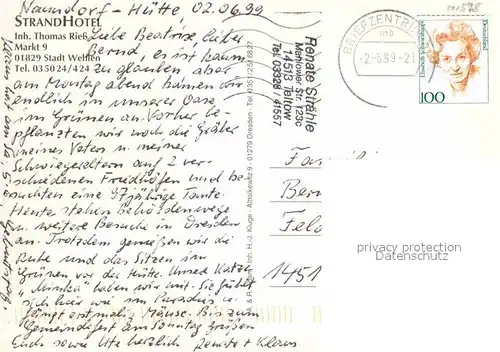 Naundorf - Hütte 02.06.99
STRANDHOTEL
Inh. Thomas Rieß
Markt 9
01829 Stadt Wehlen
Tel. 035024/424
Liebe Beatrice, lieber
Bernd, es ist kaum
zu glauben, aber
am Montag abend kamen wir
endlich in unserer Oase
im Grünen an. Vorher be-
pflanzten wir noch die Gräber
meines Vaters u. meiner
Schwiegereltern auf 2 ver-
schiedenen Friedhöfen und be-
suchten eine 97jährige Tante.
Heute stehen Behördenwege
u. weitere Besuche in Dresden
an. Trotzdem genießen wir die
Ruhe und das Sitzen im
Grünen vor der Hütte. Unsere Katze
"Minka" haben wir mit. Sie fühlt
sich hier wie im Paradies u.
fängt erstmals Mäuse. Bis zum
Gemeindefest am Sonntag grüßen
Euch sowie Ute herzlich Renate + Klaus
Inh. H.-J. Kluge - Altbkewitz 9 - 01279 Dresden - Tel. 0351/2516827
Renate Strähle
Mahlower Str. 123c
14513 Teltow
Tel. 03328 / 41557
BRIEFZENTRUM
mb
-2.-6.99-21
Deutschland
100
14519
privacy protection
Datenschutz